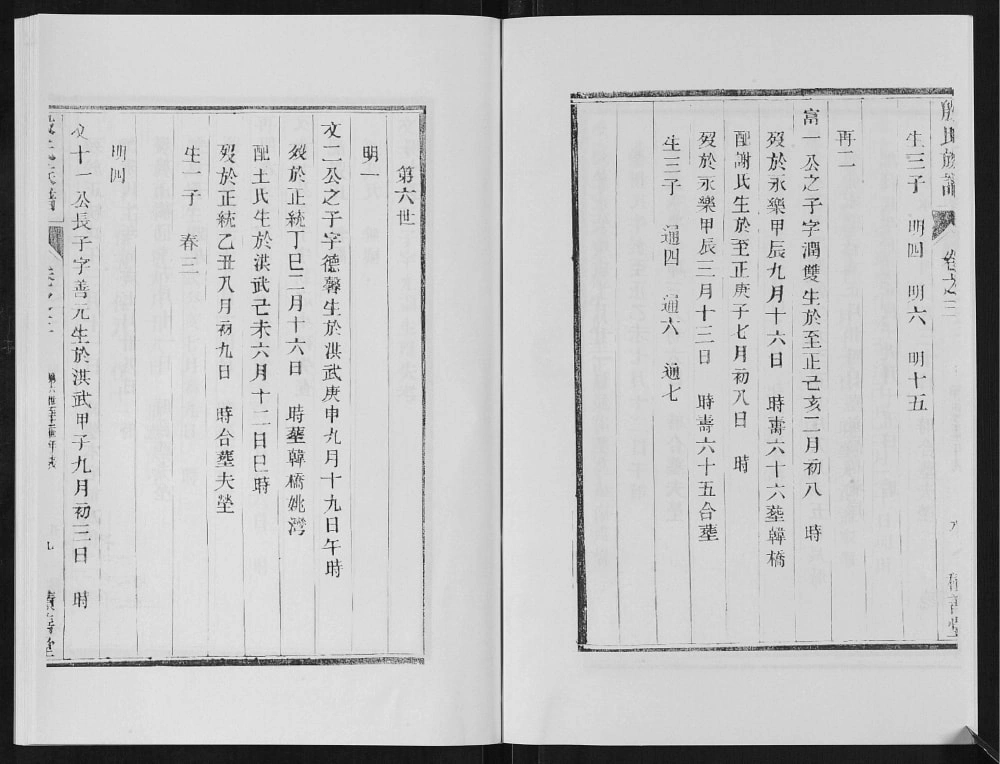 殷氏族譜 卷之三
生三子 明四 明六 明十五
再二
富一公之子字潤雙生於至正己亥二月初八 時
歿於永樂甲辰九月十六日 時壽六十六塟韓橋
配謝氏生於至正庚子七月初八日 時
歿於永樂甲辰三月十三日 時壽六十五合塟
生三子 通四 通六 通七
第六世
明一
文二公之子字德馨生於洪武庚申九月十九日午時
歿於正統丁巳二月十六日 時塟韓橋姚灣
配土氏生於洪武己未六月十二日巳時
歿於正統乙丑八月初九日 時合塟夫塋
生一子 春三
明四
文十一公長子字善元生於洪武甲子九月初三日 時
九